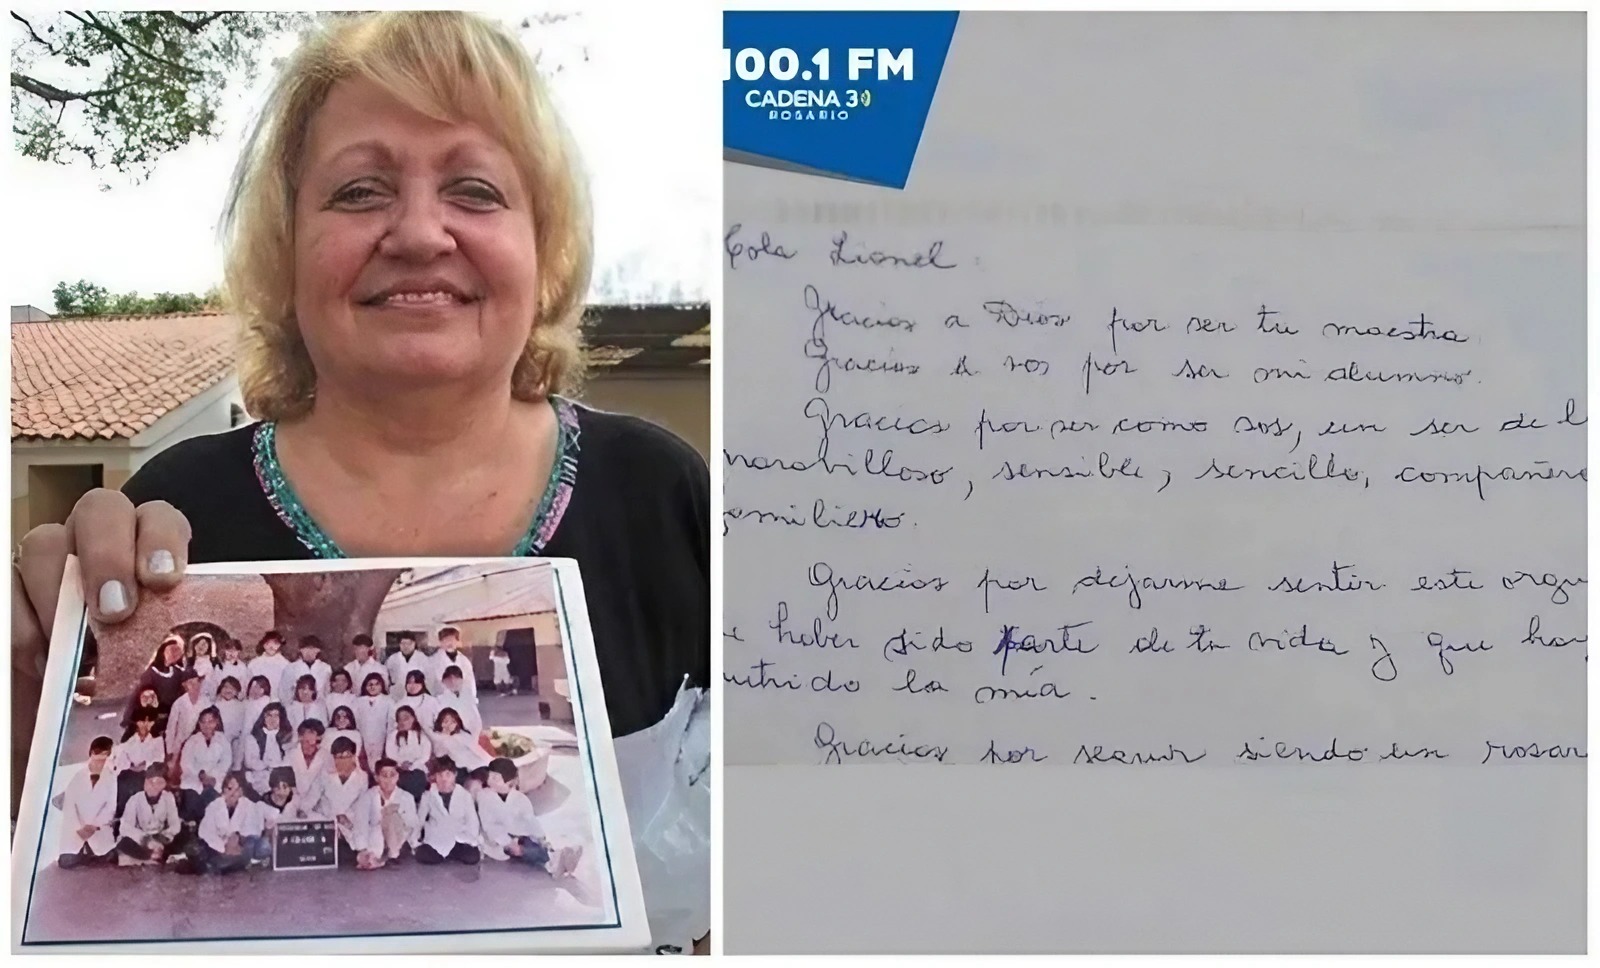 100.1 FM
CADENA 3
ROSARIO
Lionel
Gracias a Dios por ser tu maestra
Gracias a vos por ser mi alumno.
Gracias por ser como sos, un ser de l
maravilloso, sensible, sencillo, compañero
familiero.
Gracias por dejarme sentir este orgu
haber sido parte de tu vida y que hay
utrido la mía.
Gracias por seguir siendo un rosar